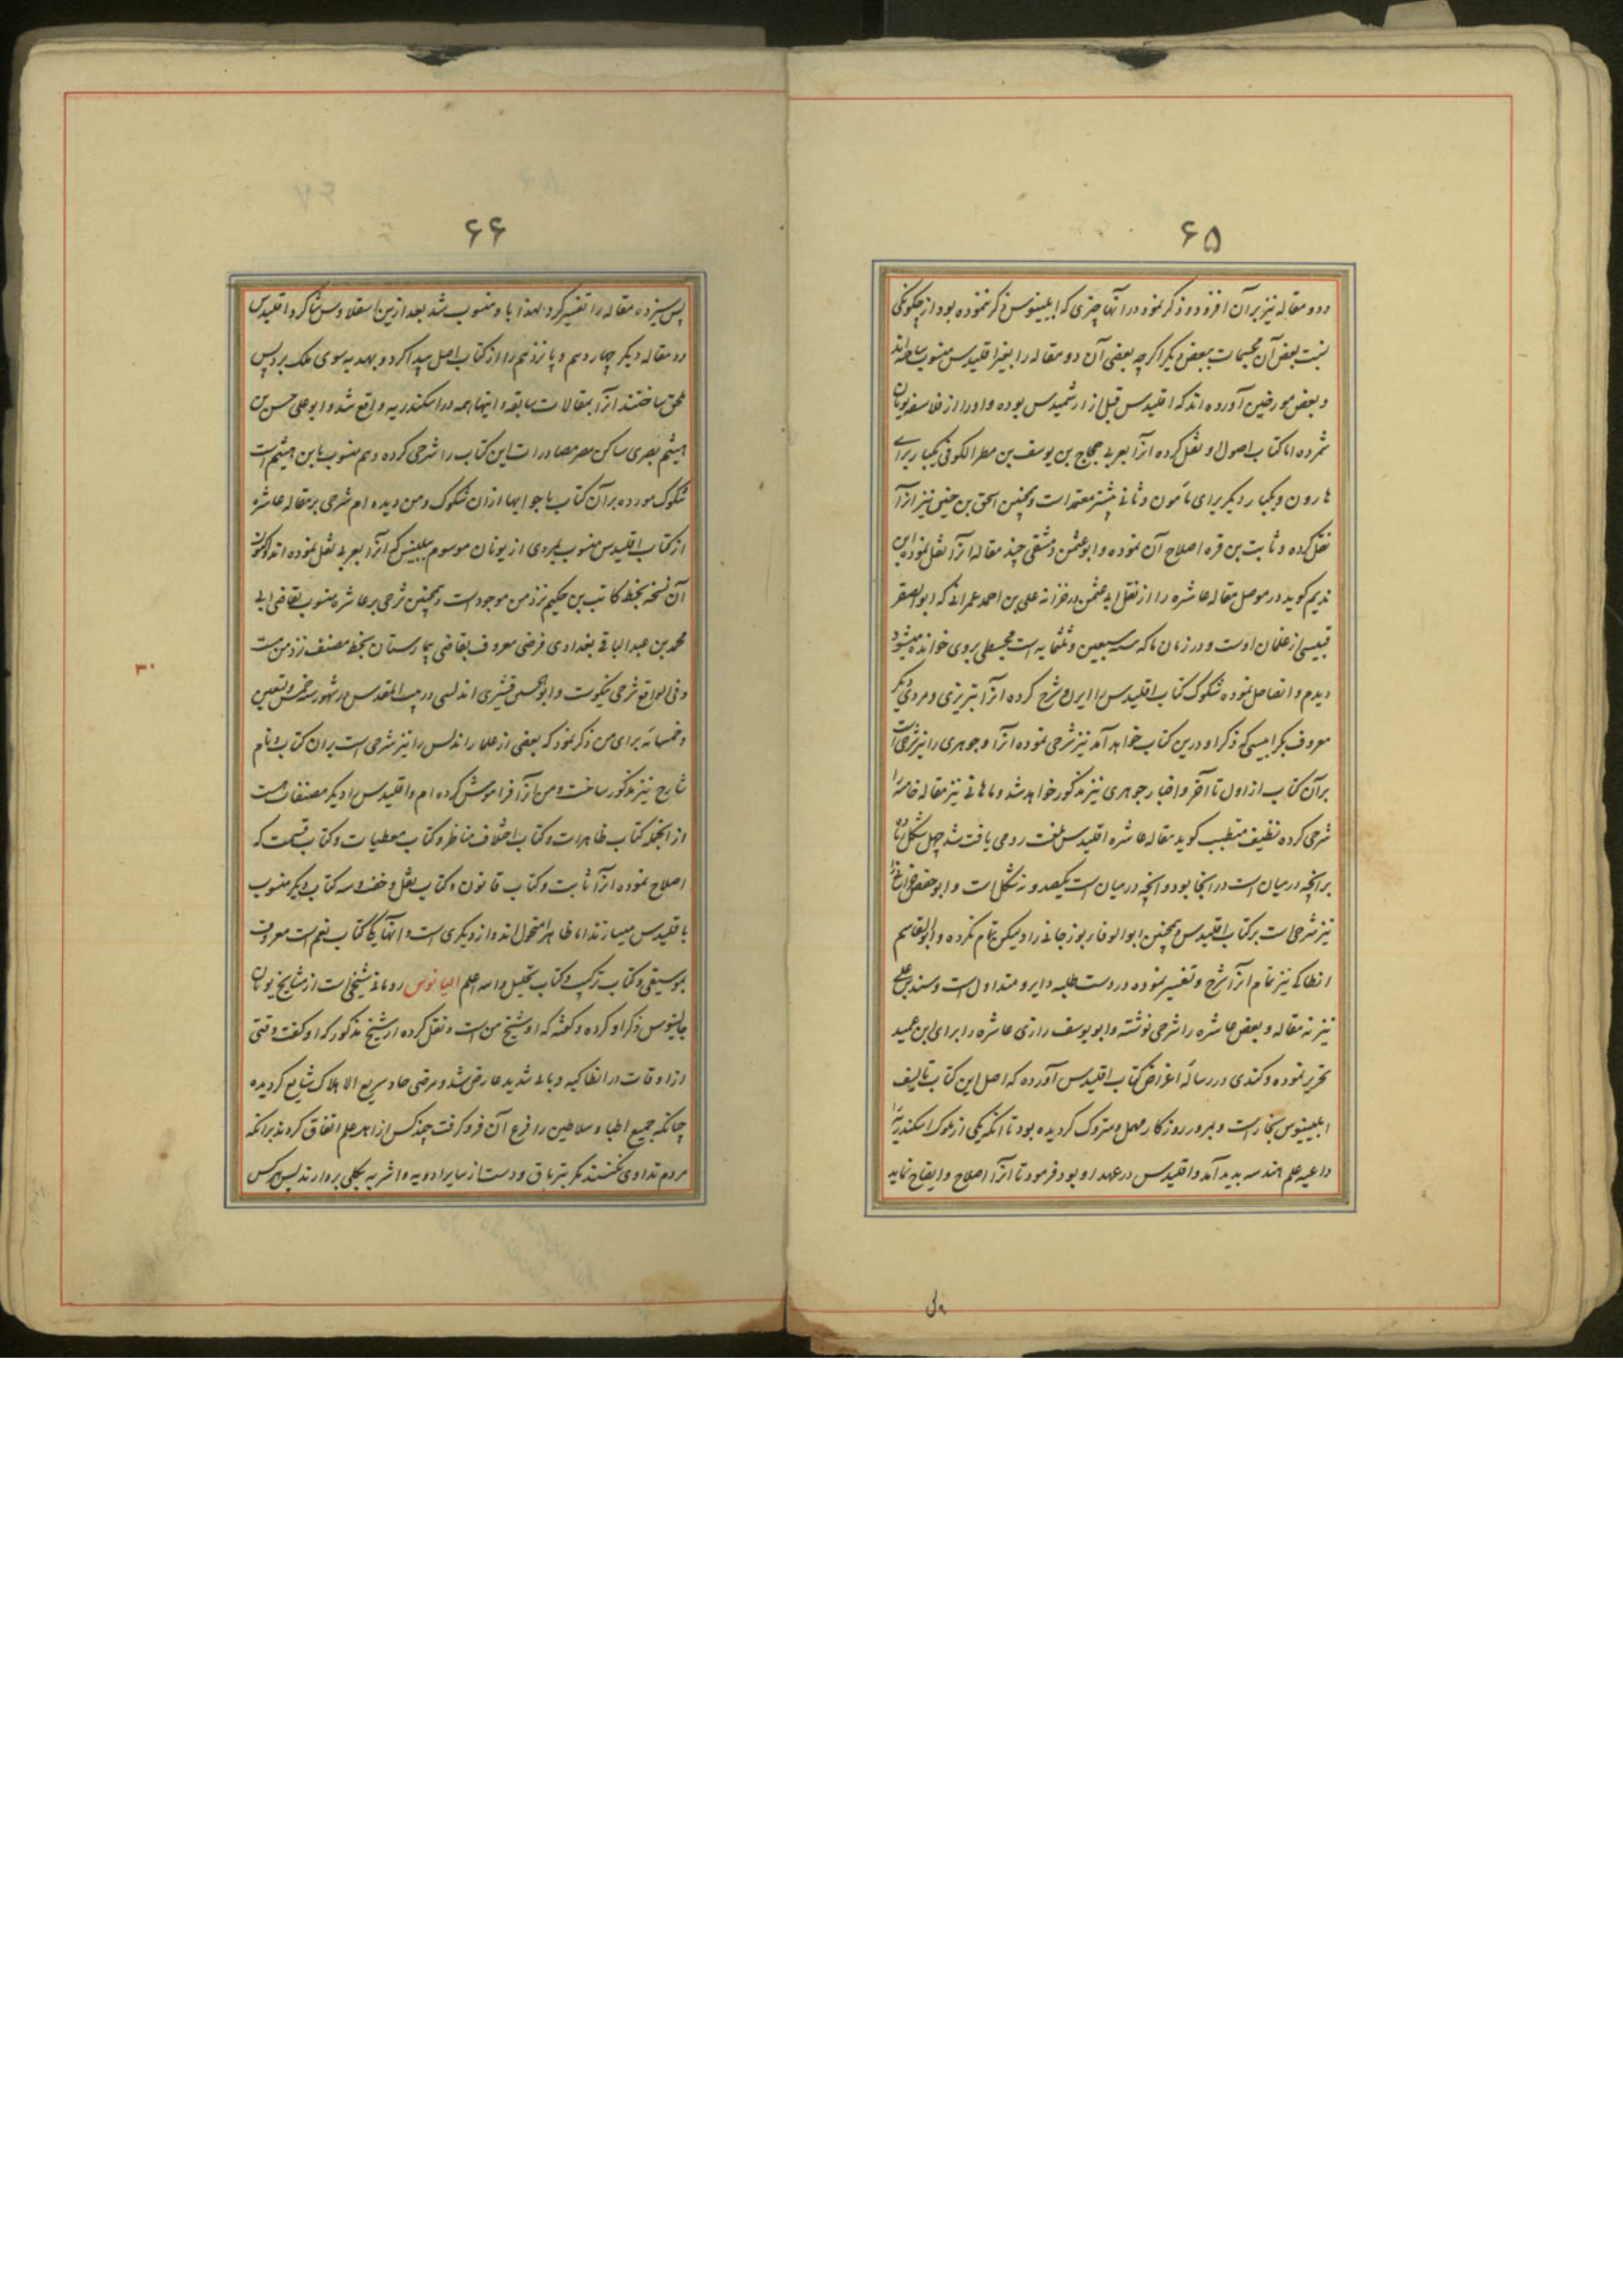 ۶۵
ودو مقاله نیز بران افزود و ذکر نمود در انها چیزی که ابلینوس ذکر ننموده بود از چگونگی
نسبت بعض آن مجسمات ببعض دیگر اگرچه بعضی آن دو مقاله را بغیر اقلیدس منسوب ساخته‌اند
و بعض مورخین آورده اند که اقلیدس قبل از ارشمیدس بوده و او را از فلاسفه یونان
شمرده اما کتاب اصول او نقل کرده انرا بعربی حجاج بن یوسف بن مطر الکوفی یکبار برای
هارون و یکبار دیگر برای مأمون و ثانی بیشتر معتمد است و همچنین اسحق بن حنین نیز انرا
نقل کرده و ثابت بن قره اصلاح آن نموده و ابوعثمن دمشقی چند مقاله انرا نقل نموده ابن
ندیم کوید در موصل مقاله عاشره را از نقل ابی عثمن در خزانه علی بن احمد عمرانی که ابوالصقر
قبیسی از غلمان اوست و در زمان ما که سنه سبعین و ثلثمایه است مجسطی بروی خوانده میشود
دیدم و انفاصل نموده شکوک کتاب اقلیدس را ایرن و شرح کرده انرا تبریزی و مردی دیکر
معروف بکرابیسی که ذکر او درین کتاب خواهد آمد نیز شرحی نموده انرا و جوهری را نیز شرحی است
بران کتاب از اول تا آخر و اخبار جوهری نیز مذکور خواهد شد و ماهانی نیز مقاله خامسه را
شرحی کرده نظیف متطبب کوید مقاله عاشره اقلیدس بلغت رومی یافت شد چهل شکل زیاده
برانچه در میان است در انجا بود و انچه در میان است یکصد و نه شکل است و ابو حفص
نیز شرحی است بر کتاب اقلیدس و همچنین ابوالوفا بوزجانی را و لیکن تمام نکرده و ابوالقاسم
انطاکی نیز تمام انرا شرح و تفسیر نموده در دست طلبه دایر و متداول است و سند بن علی
نیز نه مقاله و بعض عاشره را شرحی نوشته و ابو یوسف رازی عاشره را برای ابن عمید
تحریر نموده و کندی در رسالهٔ اغراض کتاب اقلیدس آورده که اصل این کتاب تالیف
ابلینوس نجار است و بمرور روزکار مهمل و متروک کردیده بود تا انکه یکی از ملوک اسکندریه را
داعیه علم هندسه پدید آمد و اقلیدس در عهد او بود فرمود تا انرا اصلاح و ایضاح نماید
۶۶
پس سیزده مقاله را تفسیر کرد لهذا باو منسوب شد بعد ازین اسقلاوس شاکرد اقلیدس
دو مقاله دیکر چهاردهم و پانزدهم را از کتاب اصل پیدا کرد و بهدیه سوی ملک برد پس
ملحق ساختند انرا بمقالات سابقه و اینها همه در اسکندریه واقع شد و ابو علی حسن بن
هیثم بصری ساکن مصر مصادرات این کتاب را شرحی کرده و هم منسوب بابن هیثم است
شکوک مورده بران کتاب با جوابها ازان شکوک و من دیده ام شرحی بر مقاله عاشره
از کتاب اقلیدس منسوب بمردی از یونان موسوم ببلبنس که انرا بعربی نقل نموده اند و اکنون
آن نسخه بخط کاتب بن حکیم نزد من موجود است و همچنین شرحی بر عاشره منسوب بقاضی ابی
محمد بن عبدالباقی بغدادی فرضی معروف بقاضی بیمارستان بخط مصنف نزد من هست
و فی الواقع شرحی نیکوست و ابوالحسن قشیری اندلسی در بیت المقدس در شهور سنه خمس و تسعین
و خمسمائه برای من ذکر نمود که بعضی از علماء اندلس را نیز شرحی است بران کتاب و نام
شارح نیز مذکور ساخت و من انرا فراموش کرده ام و اقلیدس را دیکر مصنفات هست
از انجمله کتاب ظاهرات و کتاب اختلاف مناظر و کتاب معطیات و کتاب قسمت که
اصلاح نموده انرا ثابت و کتاب قانون و کتاب ثقل و خفت و سه کتاب دیکر منسوب
باقلیدس میسازند اما ظاهرا منحول اند و از دیکری است و انها یکی کتاب نغم است معروف
بموسیقی و کتاب ترکیب و کتاب تحلیل والله اعلم الیانوس رومانی شیخی است از مشایخ یونان
جالینوس ذکر او کرده و کفته که او شیخ من است و نقل کرده از شیخ مذکور که او کفت وقتی
از اوقات در انطاکیه وبائی شدید عارض شد و مرضی حاد سریع الاهلاک شایع کردیده
چنانکه جمیع اطبا و سلاطین را فزع آن فرو کرفت چند کس از اهل علم اتفاق کردند برانکه
مردم تداوی نکنند مکر بتریاق و دست از سایر ادویه و اشربه بکلی بردارند پس هرکس
۳۰